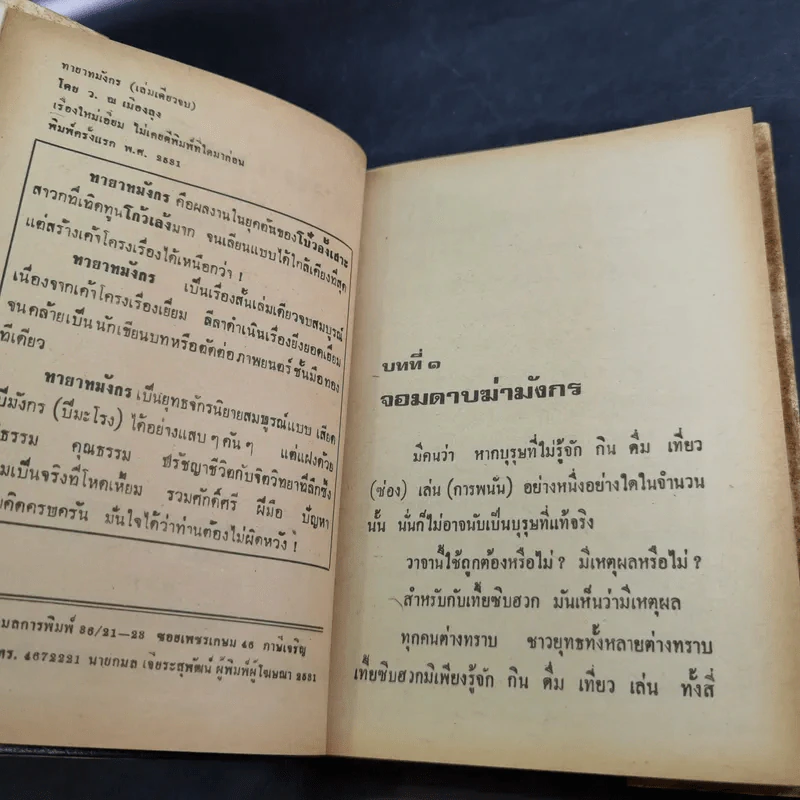 ทายาทมังกร (เล่มเดียวจบ)
โดย ว. ณ เมืองลุง
เรื่องใหม่เอี่ยม ไม่เคยตีพิมพ์ที่ใดมาก่อน
พิมพ์ครั้งแรก พ.ศ. 2531
ทายาทมังกร คือผลงานในยุคต้นของโป๋วอ้งเสาะ
สาวกที่เทิดทูนโกวเล้งมาก จนเลียนแบบได้ใกล้เคียงที่สุด
แต่สร้างเค้าโครงเรื่องได้เหนือกว่า !
ทายาทมังกร เป็นเรื่องสั้นเล่มเดียวจบสมบูรณ์
เนื่องจากเค้าโครงเรื่องเยี่ยม ลีลาดำเนินเรื่องยิ่งยอดเยี่ยม
จนคล้ายเป็นนักเขียนบทหรือตัดต่อภาพยนตร์ชั้นมือทอง
ทีเดียว
ทายาทมังกร เป็นยุทธจักรนิยายสมบูรณ์แบบ เสียด
ปีมังกร (ปีมะโรง) ได้อย่างแสบ ๆ คัน ๆ แต่แฝงด้วย
ธรรม คุณธรรม ปรัชญาชีวิตกับจิตวิทยาที่ลึกซึ้ง
มเป็นจริงที่โหดเหี้ยม รวมศักดิ์ศรี ฝีมือ ปัญหา
คิดครบครัน มั่นใจได้ว่าท่านต้องไม่ผิดหวัง !
มลการพิมพ์ 86/21-23 ซอยเพชรเกษม 46 ภาษีเจริญ
ทร. 4672221 นายกมล เจียระสุพัฒน์ ผู้พิมพ์ผู้โฆษณา 2531
บทที่ ๑
จอมดาบฆ่ามังกร
มีคนว่า หากบุรุษที่ไม่รู้จัก กิน ดื่ม เที่ยว
(ซ่อง) เล่น (การพนัน) อย่างหนึ่งอย่างใดในจำนวน
นั้น นั่นก็ไม่อาจนับเป็นบุรุษที่แท้จริง
วาจานี้ใช้ถูกต้องหรือไม่ ? มีเหตุผลหรือไม่ ?
สำหรับกับเกี้ยซิบฮวก มันเห็นว่ามีเหตุผล
ทุกคนต่างทราบ ชาวยุทธทั้งหลายต่างทราบ
เกี้ยซิบฮวกมิเพียงรู้จัก กิน ดื่ม เที่ยว เล่น ทั้งสี่